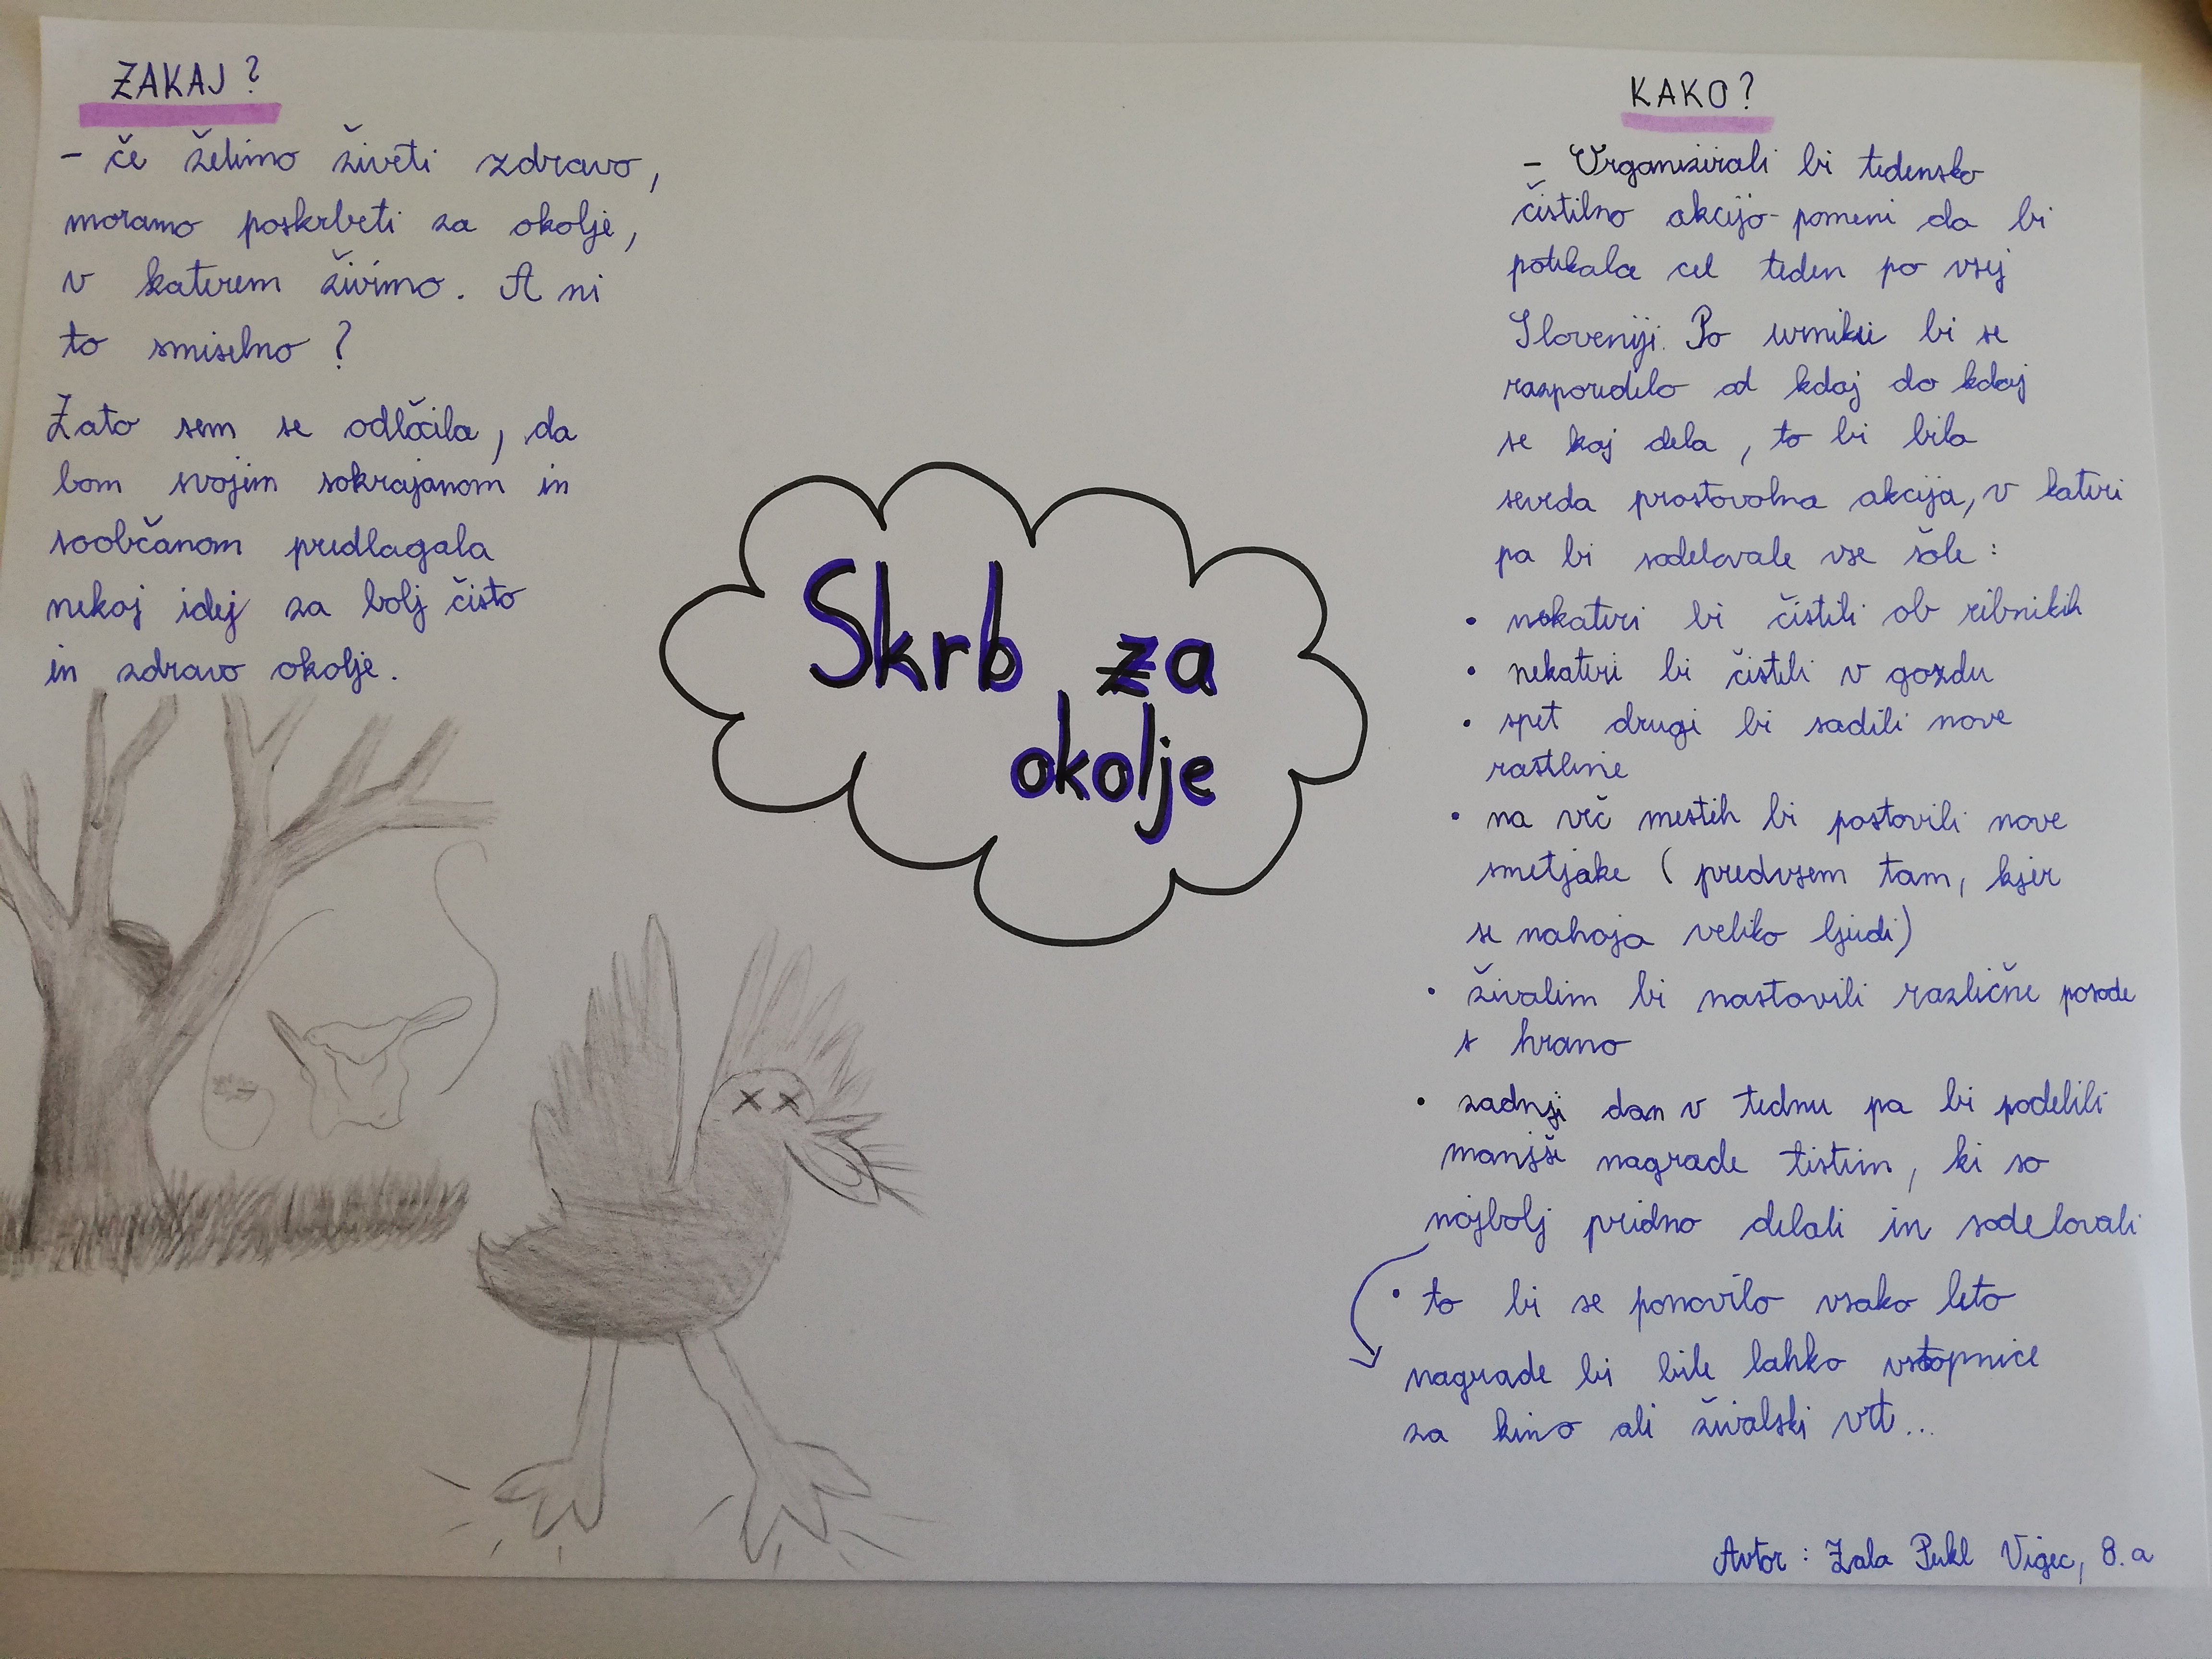 ZAKAJ?
- če želimo živeti zdravo,
moramo poskrbeti za okolje,
v katerem živimo. A ni
to smiselno?
Zato sem se odlčila, da
bom svojim sokrajanom in
soobčanom predlagala
nekaj idej za bolj čisto
in zdravo okolje.
Skrb za
okolje
KAKO?
- Organizirali bi tedensko
čistilno akcijo - pomeni da bi
potekala cel teden po vsej
Sloveniji. Po urniku bi se
razporedilo od kdaj do kdaj
se kaj dela, to bi bila
sevrda prostovolna akcija, v kateri
pa bi sodelovale vse šole:
• nekateri bi čistili ob ribnikih
• nekateri bi čistili v gozdu
• spet drugi bi sadili nove
rastline
• na več mestih bi postovili nove
smetjake (predvsem tam, kjer
se nahaja veliko ljudi)
• živalim bi nastavili različne posode
s hrano
• zadnji dan v tednu pa bi podelili
manjši nagrade tistim, ki so
najbolj pridno delali in sodelovali
• to bi se ponovilo vsako leto
nagrade bi bile lahko vstopnice
za kino ali živalski vrt...
Avtor: Zala Pukl Vigec, 8.a